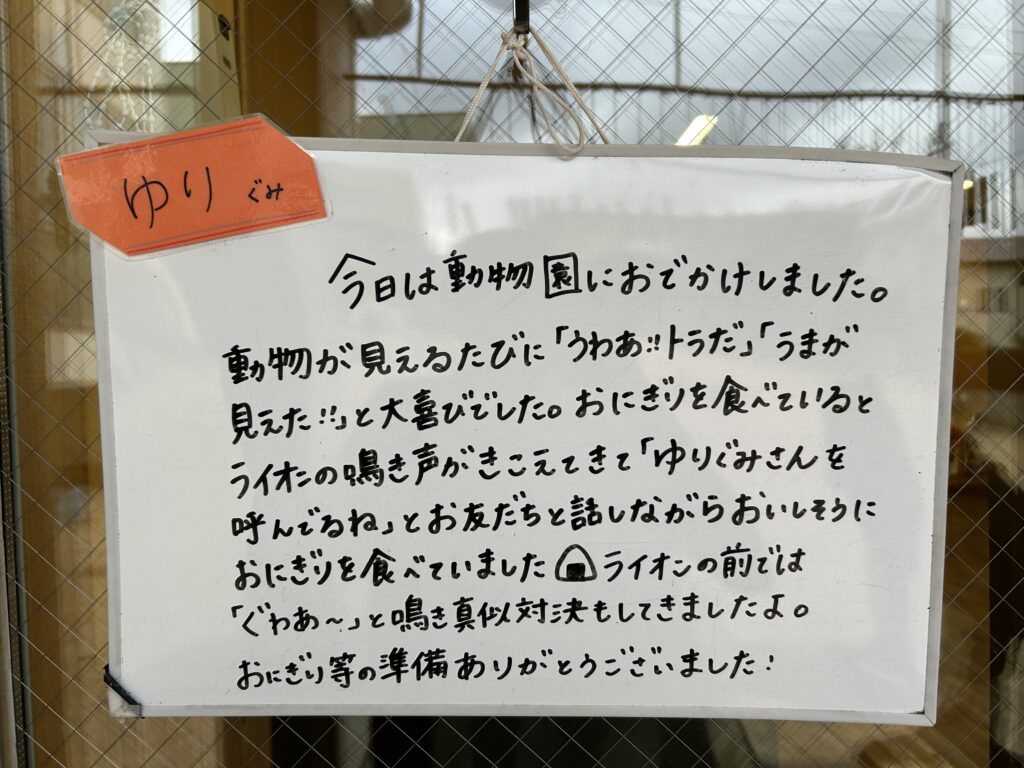 ゆり ぐみ
今日は動物園におでかけしました。
動物が見えるたびに「うわあ!!トラだ」「うまが
見えた!!」と大喜びでした。おにぎりを食べていると
ライオンの鳴き声がきこえてきて「ゆりぐみさんを
呼んでるね」とお友だちと話しながらおいしそうに
おにぎりを食べていました🍙ライオンの前では
「ぐわあ～」と鳴き真似対決もしてきましたよ。
おにぎり等の準備ありがとうございました!